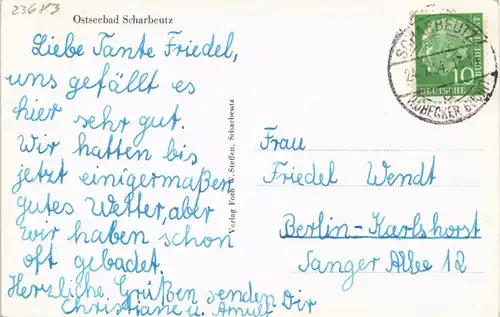 23683
Ostseebad Scharbeutz
Liebe Tante Friedel,
uns gefällt es
hier sehr gut.
Wir hatten bis
jetzt einigermaßen
gutes Wetter, aber
wir haben schon
oft gebadet.
Herzliche Grüßen senden Dir
Christiane u. Arnulf
Verlag Foto W. Steffen, Scharbeutz
SCHARBEUTZ
LÜBECKER BUCHT
10
DEUTSCHE
BUNDESPOST
Frau
Friedel Wendt
Berlin-Karlshorst
Sanger Allee 12